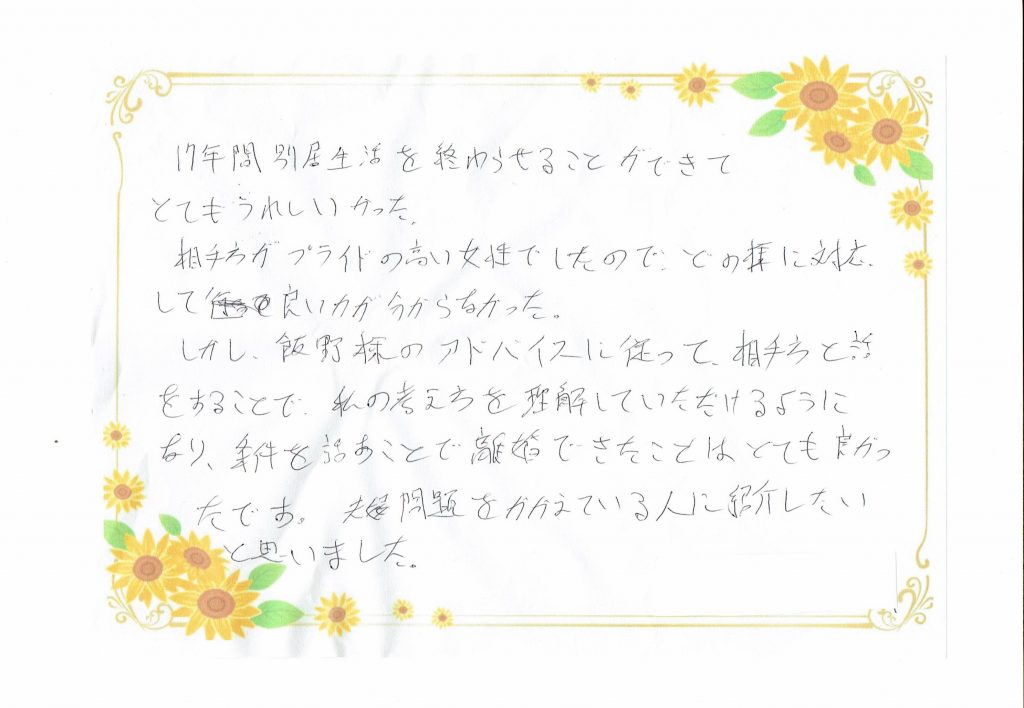 17年間別居生活を終わらせることができて
とてもうれしいかった。
相手方がプライドの高い女性でしたので、どの様に対応
して良いカが分からなかった。
しかし、飯野様のアドバイスに従って、相手方と話
をすることで、私の考え方を理解していただけるように
なり、条件を話あことで離婚できたことはとても良かっ
たです。夫婦問題をかかえている人に紹介したい
と思いました。